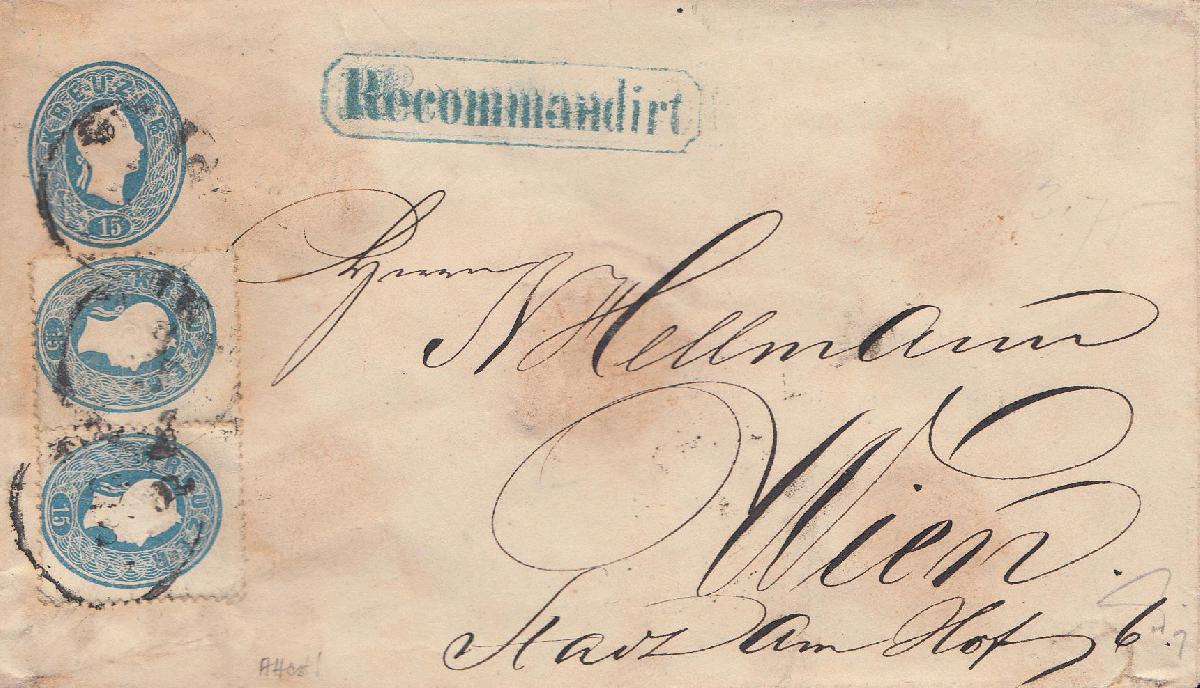 KREUZER
15
Recommandirt
KREUZER
15
KREUZER
15
Herrn
N Hellmann
Wien
Stadt Am Hof 6.